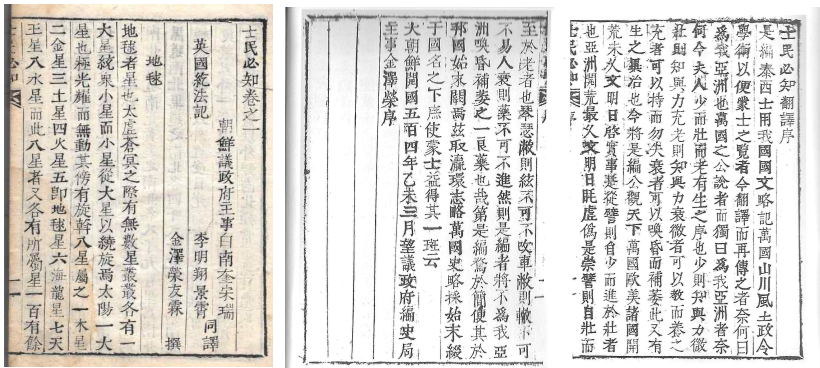 士民必知翻譯序
是編泰西士用我國國文略記萬國山川風土政令
學術以便衆士之覽者今翻譯而再傳之者奈何曰
爲我亞洲也萬國之公說者而獨曰爲我亞洲者奈
何今夫人少而壯而老有生之序也少則知與力微
壯則知與力充老則知與力衰微者可以教而養之
充者可以持而勿失衰者可以喚昏而補萎此又有
生之異治也今將是編公觀天下萬國歐美諸國開
荒未久文明日啓實事是從譬則自少而進於壯者
也亞洲開荒最久文明日眊虛僞是崇譬則自壯而
士民必知 序
至於老者也琴瑟敝則絃不可不改車敝則轍不可
不易人衰則藥不可不進然則是編者將不爲我亞
洲喚昏補萎之一良藥也哉第是編鶩於簡便其於
邦國始末闕焉玆取瀛環志略萬國史略採始末綴
于國名之下庶使蒙士益得其一班云
大朝鮮開國五百四年乙未三月望議政府編史局
主事金澤榮序
士民必知卷之一
英國紇法記
朝鮮議政府主事白南奎宋瑞
李明翔景霄 同譯
金澤榮友霖 撰
地毬
地毬者星也太虛蒼冥之際有無數星叢叢各有一
大星以統衆小星而小星從大星以繞旋焉太陽一大
星也極光耀而無動其傍有旋斡八星屬之一木星
二金星三土星四火星五卽地毬星六海龍星七天
王星八水星而此八星者又各有所屬星一百有餘